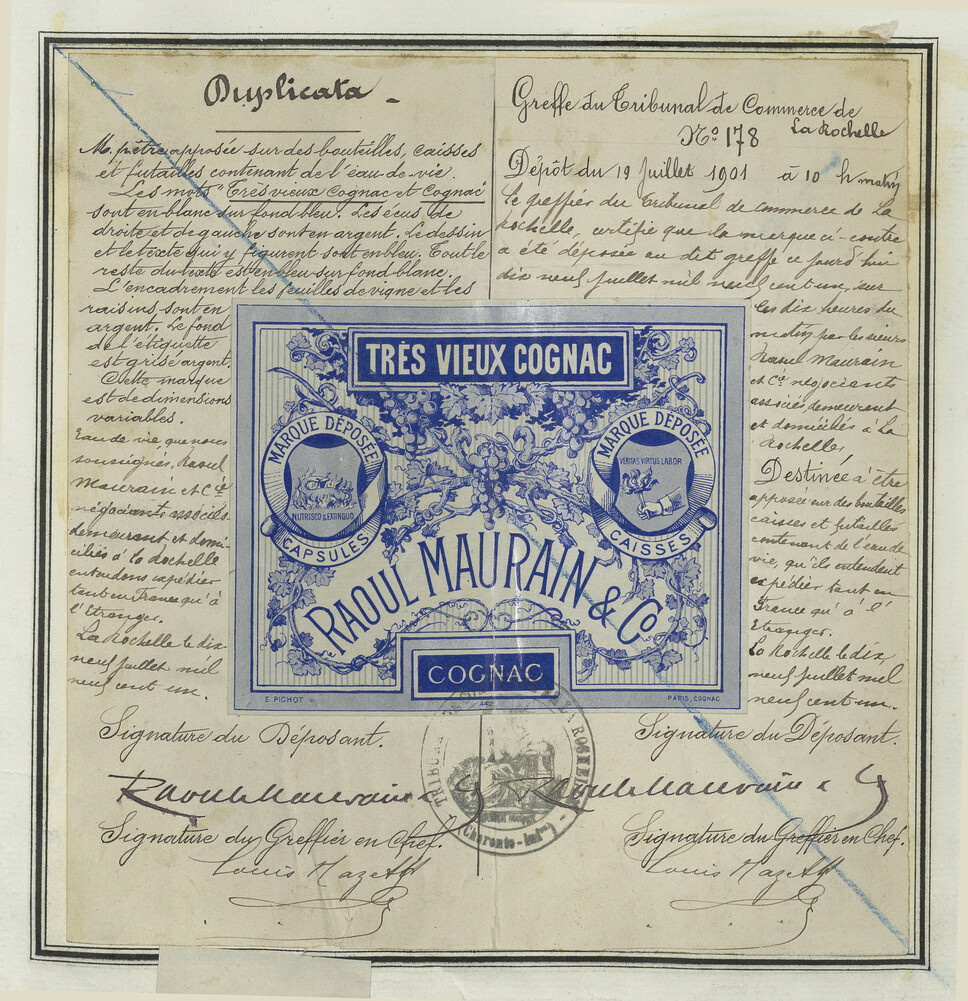 Duplicata
M. pr être apposée sur des bouteilles, caisses
et futailles contenant de l'eau-de-vie.
Les mots "Très vieux Cognac et Cognac"
sont en blanc sur fond bleu. Les écus de
droite et de gauche sont en argent. Le dessin
et le texte qui y figurent sont en bleu. Tout le
reste du texte est en bleu sur fond blanc.
L'encadrement les feuilles de vigne et les
raisins sont en
argent. Le fond
de l'étiquette
est grisé argent.
Cette marque
est de dimensions
variables.
Eau de vie, que nous
soussignés, Raoul
Maurain et Cie
négociants associés
demeurant et domi-
ciliés à la Rochelle
entendons expédier
tant en France qu'à
l'Etranger.
La Rochelle le dix
neuf juillet mil
neuf cent un.
Signature du Déposant.
Raoul Maurain & Cy
Signature du Greffier en Chef.
Louis
Greffe du Tribunal de Commerce de
La Rochelle
No 178
Dépôt du 19 Juillet 1901 à 10 h matin
Le greffier du Tribunal de commerce de La
Rochelle, certifie que la marque ci-contre
a été déposée au dit greffe ce jourd'hui
dix neuf juillet mil neuf cent un, sur
les dix heures du
matin par les sieurs
Raoul Maurain
et Cie négociants
associés, demeurant
et domiciliés à La
Rochelle,
Destinée à être
apposée sur des bouteilles
caisses et futailles
contenant de l'eau de
vie, qu'ils entendent
expédier tant en
France qu'à l'
Etranger.
La Rochelle le dix
neuf juillet mil
neuf cent un.
Signature du Déposant.
Raoul Maurain & Cy
Signature du Greffier en Chef.
Louis
TRÈS VIEUX COGNAC
MARQUE DÉPOSÉE
NUTRISCO & EXTINGUO
CAPSULES
MARQUE DÉPOSÉE
VERITAS VIRTUS LABOR
CAISSES
RAOUL MAURAIN & Co
COGNAC
E. PICHOT
442
PARIS, COGNAC
(Charente-Infre)